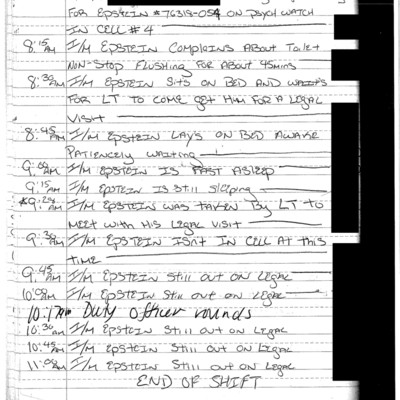 FOR EPSTEIN #76318-054 ON PSYCH WATCH
IN CELL #4
8:15AM I/M EPSTEIN COMPLAINS ABOUT TOILET
NON-STOP FLUSHING FOR ABOUT 45MINS
8:30AM I/M EPSTEIN SITS ON BED AND WAITS
FOR LT TO COME GET HIM FOR A LEGAL
VISIT
8:45AM I/M EPSTEIN LAYS ON BED AWAKE
PATIENCELY WAITING
9:00AM I/M EPSTEIN IS FAST ASLEEP
9:15AM I/M EPSTEIN IS STILL SLEEPING
*9:24AM I/M EPSTEIN WAS TAKEN BY LT TO
MEET WITH HIS LEGAL VISIT
9:30AM I/M EPSTEIN ISN'T IN CELL AT THIS
TIME
9:45AM I/M EPSTEIN STILL OUT ON LEGAL
10:00AM I/M EPSTEIN STILL OUT ON LEGAL
Duty Officer rounds
10:30AM I/M EPSTEIN STILL OUT ON LEGAL
10:45AM I/M EPSTEIN STILL OUT ON LEGAL
11:00AM I/M EPSTEIN STILL OUT ON LEGAL
END OF SHIFT